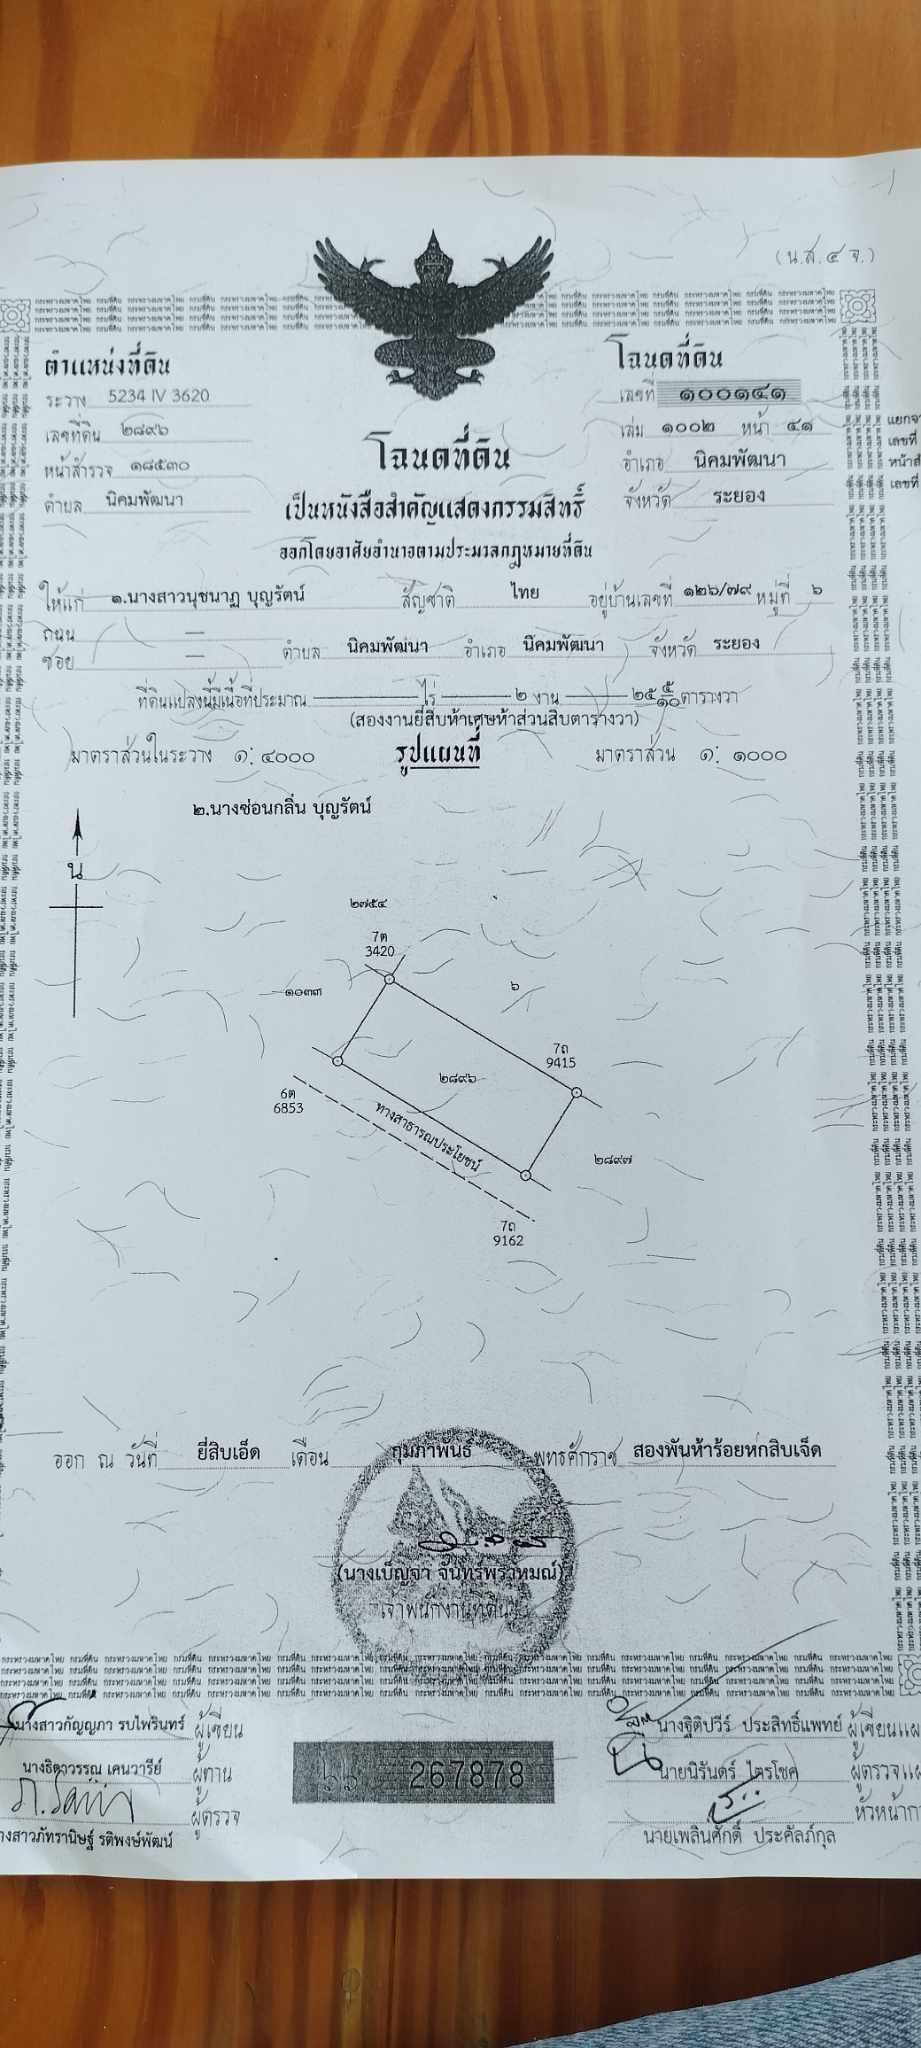 (น.ส.๔ จ.)
ตำแหน่งที่ดิน
ระวาง 5234 IV 3620
เลขที่ดิน ๒๘๙๖
หน้าสำรวจ ๑๘๕๓๐
ตำบล นิคมพัฒนา
โฉนดที่ดิน
เลขที่ ๑๐๐๑๔๑
เล่ม ๑๐๐๒ หน้า ๔๑
อำเภอ นิคมพัฒนา
จังหวัด ระยอง
เลขที่
เลขที่
โฉนดที่ดิน
เป็นหนังสือสำคัญแสดงกรรมสิทธิ์
ออกโดยอาศัยอำนาจตามประมวลกฎหมายที่ดิน
ให้แก่ ๑.นางสาวนุชนาฏ บุญรัตน์ สัญชาติ ไทย อยู่บ้านเลขที่ ๑๒๖/๗๙ หมู่ที่ ๖
ถนน —
ซอย — ตำบล นิคมพัฒนา อำเภอ นิคมพัฒนา จังหวัด ระยอง
ที่ดินแปลงนี้มีเนื้อที่ประมาณ — ไร่ — ๒ งาน — ๒๕ ๕/๑๐ ตารางวา
(สองงานยี่สิบห้าเศษห้าส่วนสิบตารางวา)
มาตราส่วนในระวาง ๑: ๔๐๐๐ รูปแผนที่ มาตราส่วน ๑: ๑๐๐๐
๒.นางซ่อนกลิ่น บุญรัตน์
น
๒๗๕๔
7ต
3420
๑๐๓๓
๖
7ถ
9415
๒๘๙๖
6ต
6853
ทางสาธารณประโยชน์
๒๘๙๗
7ถ
9162
ออก ณ วันที่ ยี่สิบเอ็ด เดือน กุมภาพันธ์ พุทธศักราช สองพันห้าร้อยหกสิบเจ็ด
(นางเบ็ญจา จันทร์พราหมณ์)
เจ้าพนักงานที่ดิน
กระทรวงมหาดไทย กรมที่ดิน
นางสาวกัญญภา รบไพรินทร์ ผู้เขียน
นางธิดาวรรณ เคนวารีย์ ผู้ทาน
ผู้ตรวจ
นางสาวภัทรานิษฐ์ รติพงษ์พัฒน์
๖๖ 267878
นางฐิติปวีร์ ประสิทธิ์แพทย์ ผู้เขียนแผ
นายนิรันดร์ ไตรโชค ผู้ตรวจแผ
หัวหน้าก
นายเพลินศักดิ์ ประคัลภ์กุล